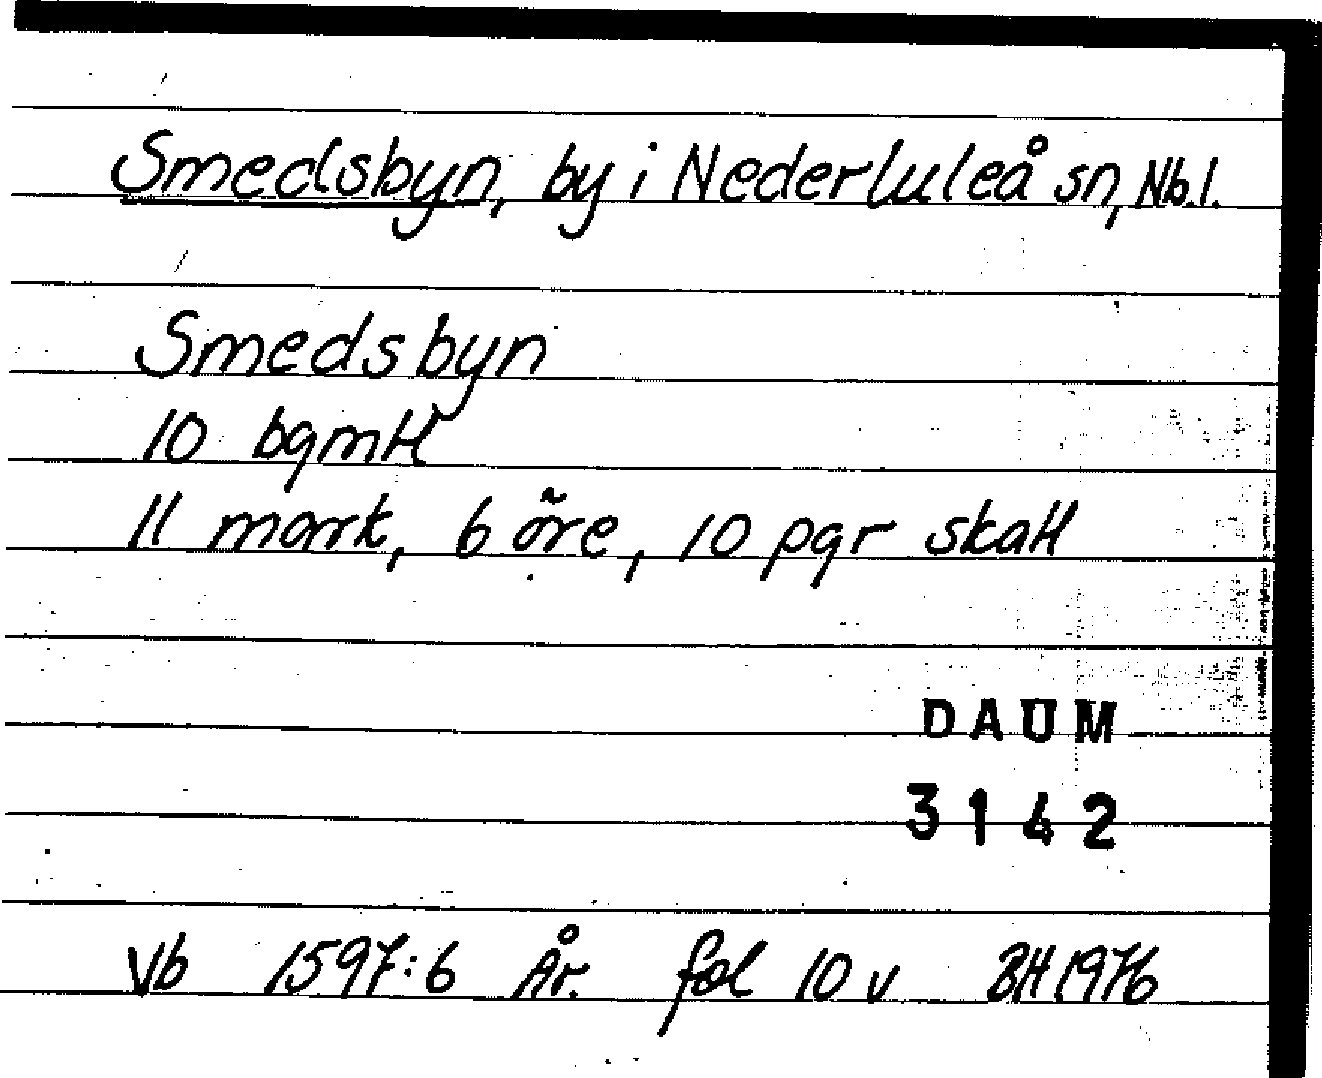 Smedsbyn, by i Nederluleå sn, Nb.l.
Smedsbyn
10 bgmtl
11 mark, 6 öre, 10 pgr skatt
DAUM
3142
Vb 1597:6 År. fol 10 v BH 1976